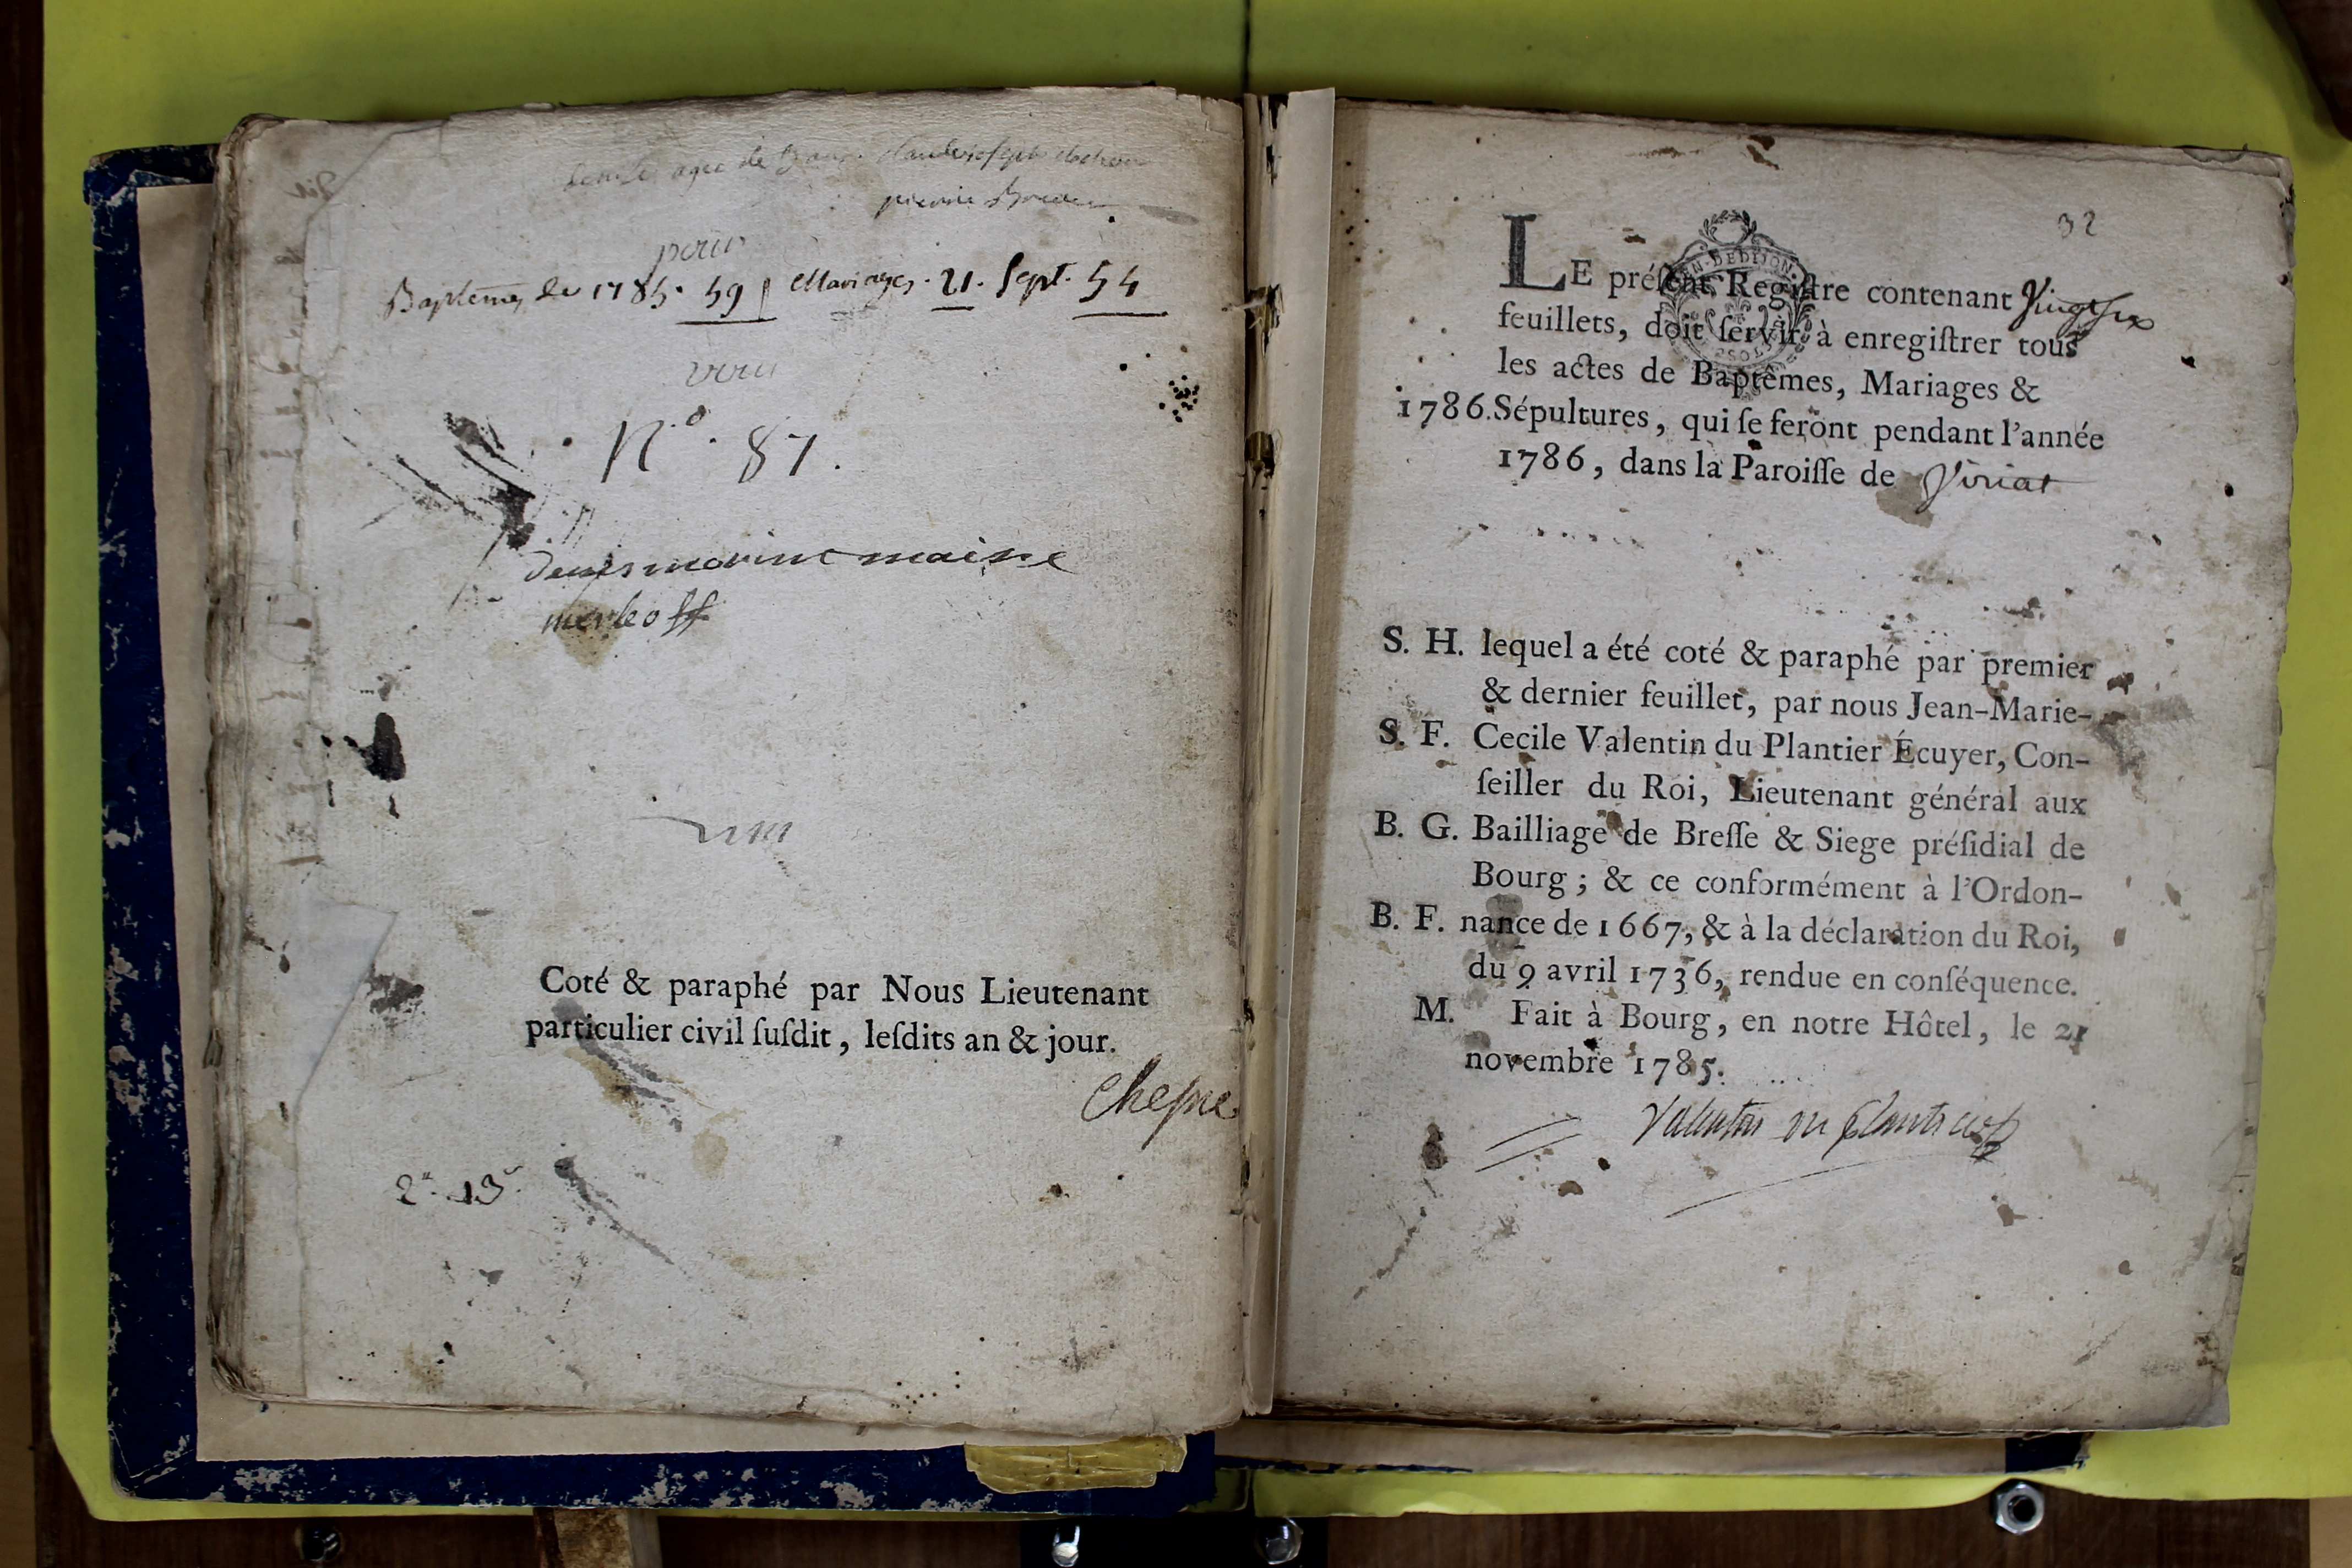 agée de
pierre
Baptemes de 1785. 59 Mariages. 21. Sept. 54
N.º 87.
maire
Coté & paraphé par Nous Lieutenant
particulier civil ſuſdit, leſdits an & jour.
Cheſne
32
LE préſent Regiſtre contenant Vingtſix
feuillets, doit ſervir à enregiſtrer tous
les actes de Baptêmes, Mariages &
1786. Sépultures, qui ſe feront pendant l'année
1786, dans la Paroiſſe de Viriat
S. H. lequel a été coté & paraphé par premier
& dernier feuillet, par nous Jean-Marie-
S. F. Cecile Valentin du Plantier Écuyer, Con-
ſeiller du Roi, Lieutenant général aux
B. G. Bailliage de Breſſe & Siege préſidial de
Bourg; & ce conformément à l'Ordon-
B. F. nance de 1667, & à la déclaration du Roi,
du 9 avril 1736, rendue en conſéquence.
M. Fait à Bourg, en notre Hôtel, le 21
novembre 1785.
Valentin du Plantier